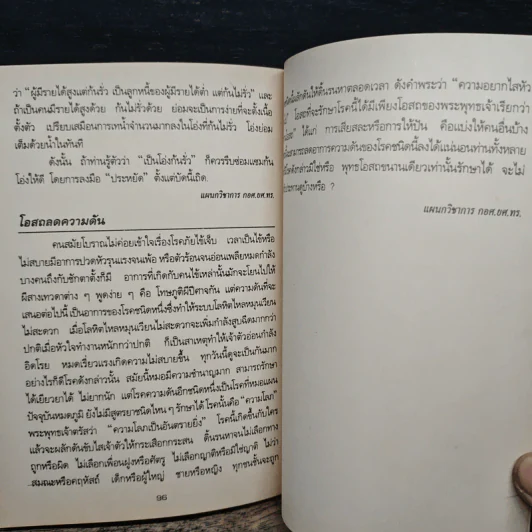 ว่า "ผู้มีรายได้สูงแต่กันรั่ว เป็นลูกหนี้ของผู้มีรายได้ต่ำ แต่กันไม่รั่ว" และ
ถ้าเป็นคนมีรายได้สูงด้วย กันไม่รั่วด้วย ย่อมจะเป็นการง่ายที่จะตั้งเนื้อ
ตั้งตัว เปรียบเสมือนการเทน้ำจำนวนมากลงในโอ่งที่ก้นไม่รั่ว โอ่งย่อม
เต็มด้วยน้ำในทันที
ดังนั้น ถ้าท่านรู้ตัวว่า "เป็นโอ่งก้นรั่ว" ก็ควรรีบซ่อมแซมก้น
โอ่งให้ดี โดยการลงมือ "ประหยัด" ตั้งแต่บัดนี้เถิด
แผนกวิชาการ กอศ.ยศ.ทร.
โอสถลดความดัน
คนสมัยโบราณไม่ค่อยเข้าใจเรื่องโรคภัยไข้เจ็บ เวลาเป็นไข้หรือ
ไม่สบายมีอาการปวดหัวรุนแรงจนเพ้อ หรือตัวร้อนจนอ่อนเพลียหมดกำลัง
บางคนถึงกับชักตาตั้งก็มี อาการที่เกิดกับคนไข้เหล่านั้นมักจะโยนไปให้
ผีสางเทวดาต่าง ๆ พูดง่าย ๆ คือ โทษภูติผีปีศาจกัน แต่ความดันที่จะ
เสนอต่อไปนี้ เป็นอาการของโรคชนิดหนึ่งซึ่งทำให้ระบบโลหิตไหลหมุนเวียน
ไม่สะดวก เมื่อโลหิตไหลหมุนเวียนไม่สะดวกจะเพิ่มกำลังสูบฉีดมากกว่า
ปกติเมื่อหัวใจทำงานหนักกว่าปกติ ก็เป็นสาเหตุทำให้เจ้าตัวอ่อนกำลัง
อิดโรย หมดเรี่ยวแรงเกิดความไม่สบายขึ้น ทุกวันนี้ดูจะเป็นกันมาก
อย่างไรก็ดีโรคดังกล่าวนั้น สมัยนี้หมอมีความชำนาญมาก สามารถรักษา
ได้เยียวยาได้ ไม่ยากนัก แต่โรคความดันอีกชนิดหนึ่งเป็นโรคที่หมอแผน
ปัจจุบันหมดภูมิ ยังไม่มีสูตรยาชนิดไหน ๆ รักษาได้ โรคนั้นคือ "ความโลภ"
พระพุทธเจ้าตรัสว่า "ความโลภเป็นอันตรายยิ่ง" โรคนี้เกิดขึ้นกับใคร
แล้วจะผลักดันขับไสเจ้าตัวให้กระเสือกกระสน ดิ้นรนหาจนไม่เลือกทาง
ถูกหรือผิด ไม่เลือกเพื่อนฝูงหรือศัตรู ไม่เลือกญาติหรือมิใช่ญาติ ไม่ว่า
สมณะหรือคฤหัสถ์ เด็กหรือผู้ใหญ่ ชายหรือหญิง ทุกชนชั้นจะถูก
96
ให้ดิ้นรนหาตลอดเวลา ดังคำพระว่า "ความอยากไสหัว
โอสถที่จะรักษาโรคนี้ได้มีเพียงโอสถของพระพุทธเจ้าเรียกว่า
ได้แก่ การเสียสละหรือการให้ปัน คือแบ่งให้คนอื่นบ้าง
สามารถลดอาการความดันของโรคชนิดนี้ลงได้แน่นอนท่านทั้งหลาย
โรคดังกล่าวมิใช่หรือ พุทธโอสถขนานเดียวเท่านั้นรักษาได้ จะไม่
ดูบ้างหรือ ?
แผนกวิชาการ กอศ.ยศ.ทร.